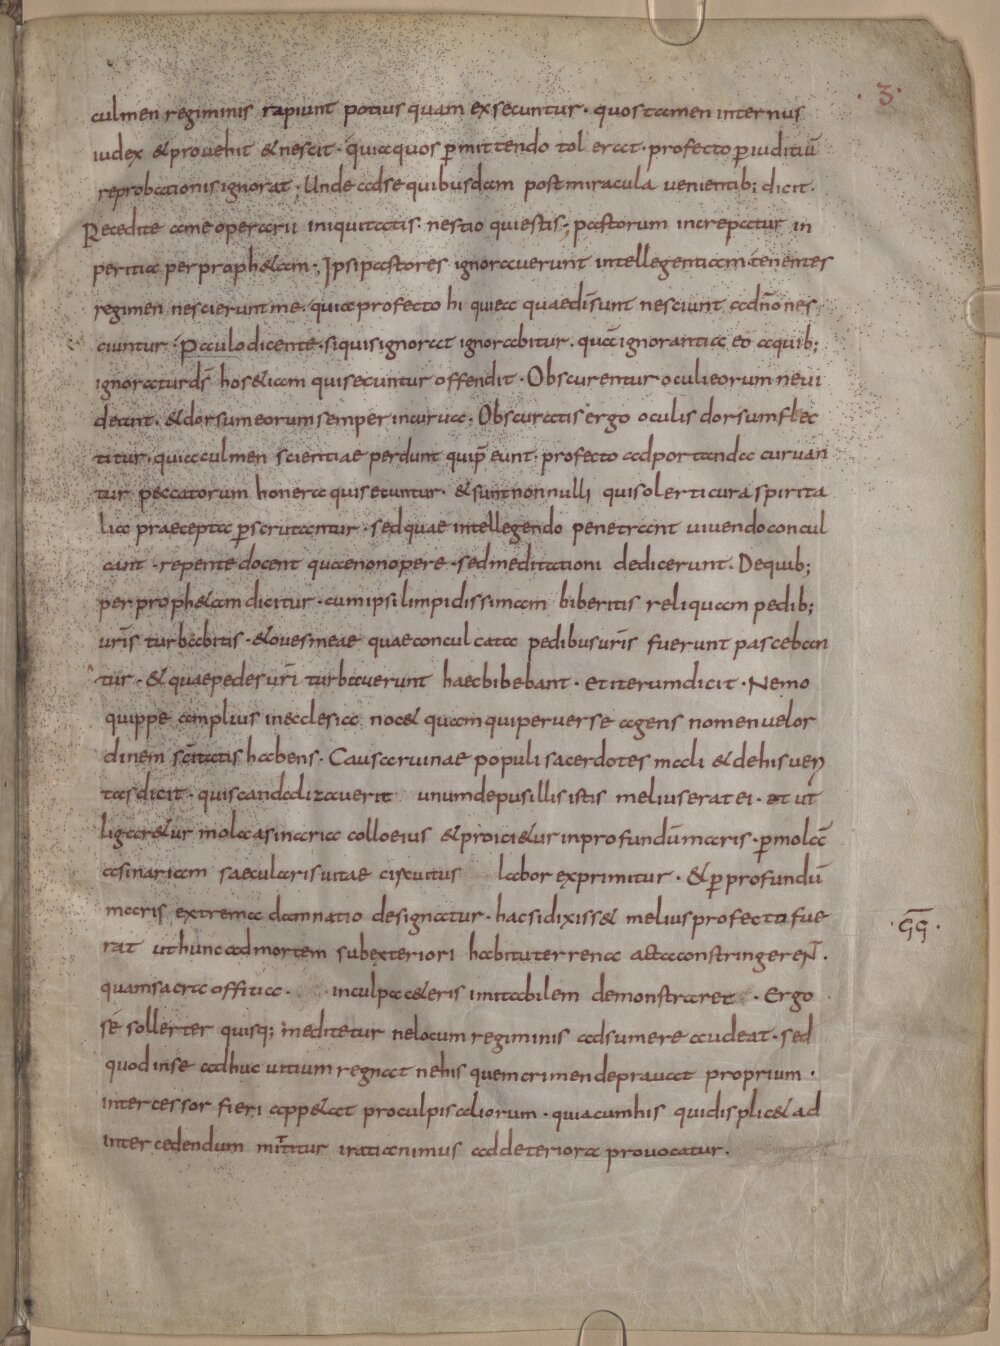 3
culmen regiminis rapiunt potius quam exsecuntur · quos tamen internus
iudex & prouehit & nescit · quia quos p̄mittendo tolerat · profecto p̄ iuditiū
reprobationis ignorat ; Unde ad se quibusdam post miracula venientib; dicit ·
Recedite a me operarii iniquitatis · nescio qui estis · pastorum increpatur in
peritia per proph&am ; Ipsi pastores ignorauerunt intellegentiam tenentes
regimen nescierunt me · quia profecto hi qui ea quae dī sunt nesciunt a dn̄o nes
ciuntur · Paulo dicente · si quis ignorat ignorabitur · quā ignorantia eo a quib;
ignoratur ds̄ hos &iam qui secuntur offendit · Obscurentur oculi eorum ne ui
deant · & dorsum eorum semper incurua · Obscuratis ergo oculis dorsum flec
titur · quia culmen scientiae perdunt qui p̄eunt · profecto ad portanda curuan
tur peccatorum honera qui secuntur · & sunt nonnulli qui solerti cura spirita
lia praecepta p̄scrutantur · sed quae intellegendo penetrant uiuendo concul
cant · repente docent quae non opere · sed meditationi dedicerunt · De quib;
per proph&am dicitur · cum ipsi limpidissimam biberitis reliquam pedib;
uris̄ turbabitis · & oues meae quae conculcata pedibus uris̄ fuerunt pasceban
tur · & quae pedes uri̅ turbauerunt haec bibebant · et iterum dicit · Nemo
quippe amplius in ecclesia noc& quam qui peruerse agens nomen uel or
dinem sc̄itatis habens · Causa ruinae populi sacerdotes mali & de his ueri
tas dicit · qui scandalizauerit unum de pusillis istis melius erat ei · et ut
ligar&ur mola asinaria collo eius & proici&ur in profundū maris · p̄ molā
asinariam saecularis uitae circuitus labor exprimitur · & p̄ profundū
maris extrema damnatio designatur · hac si dixiss& melius profecto fue
rat ut hunc ad mortem sub exteriori habitu terrena acta constringeren̄ ·
quam sacra offitia · in culpa c&eris imitabilem demonstraret · Ergo
se sollerter quisq; meditetur ne locum regiminis adsumere audeat · sed
quod in se adhuc uitium regnat ne his quem crimen deprauat proprium ·
intercessor fieri app&at pro culpis aliorum · quia cum his qui displic& ad
intercedendum mittitur irati animus ad deteriora prouocatur ·